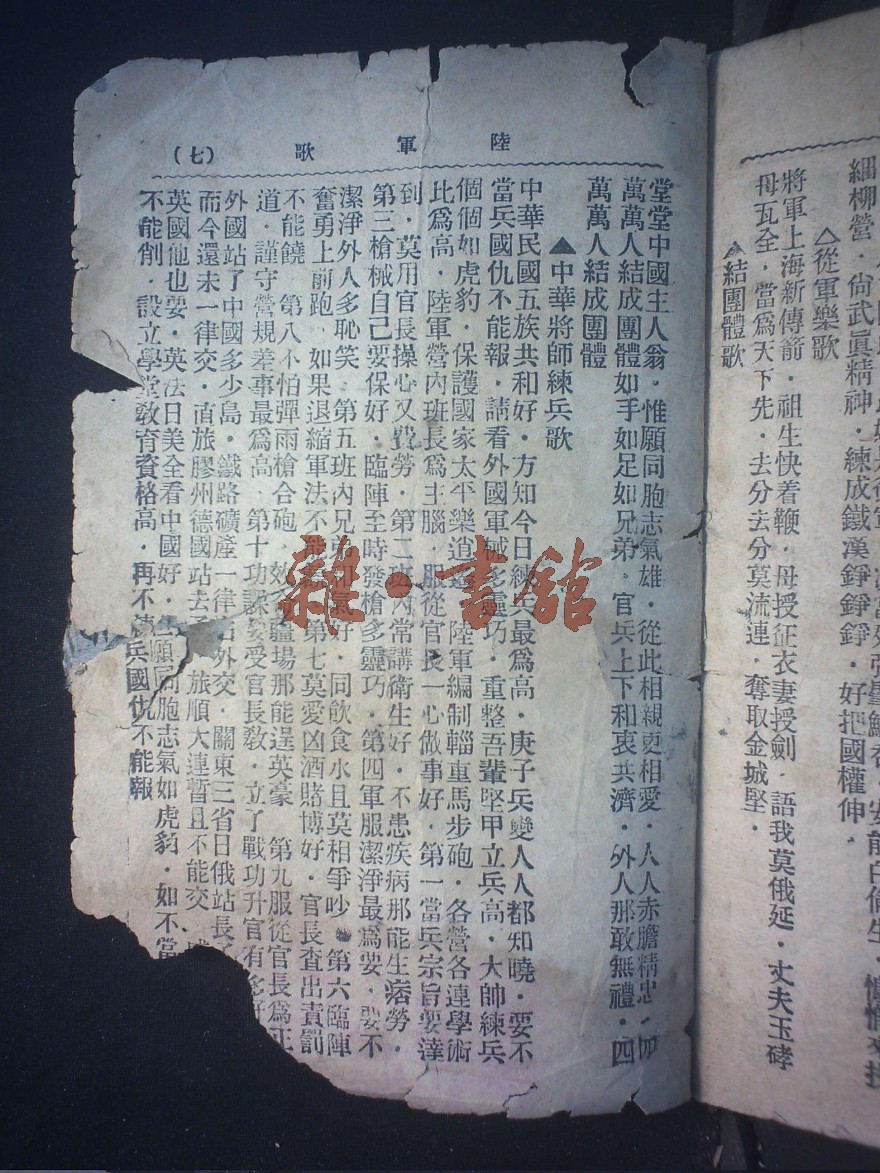 細柳營．尙武眞精神．練成鐵漢錚錚錚．好把國權伸．
△從軍樂歌
將軍上海新傳箭．祖生快着鞭．母授征衣妻授劍．語我莫俄延．丈夫玉碎
母瓦全．當爲天下先．去分去分莫流連．奪取金城堅．
▲結團體歌
陸軍歌
（七）
堂堂中國主人翁．惟願同胞志氣雄．從此相親更相愛．人人赤膽精忠．四
萬萬人結成團體如手如足如兄弟．官兵上下和衷共濟．外人那敢無禮．四
萬萬人結成團體
▲中華將師練兵歌
中華民國五族共和好．方知今日練兵最爲高．庚子兵變人人都知曉．要不
當兵國仇不能報．請看外國軍械多靈巧．重整吾輩堅甲立兵高．大帥練兵
個個如虎豹．保護國家太平樂逍遙．陸軍編制輜重馬步砲．各營各連學術
比爲高．陸軍營內班長爲主腦．服從官長一心做事好．第一當兵宗旨要達
到．莫用官長操心又費勞．第二班內常講衛生好．不患疾病那能生痞勞．
第三槍械自己要保好．臨陣至時發槍多靈巧．第四軍服潔淨最爲要．要不
潔淨外人多恥笑．第五班內兄弟和氣好．同飲食水且莫相爭吵．第六臨陣
奮勇上前跑．如果退縮軍法不能　第七莫愛凶酒賭博好．官長查出責罰
不能饒．第八不怕彈雨槍合砲．效　疆場那能逞英豪　第九服從官長爲正
道．謹守營規差事最爲高．第十功課要受官長敎．立了戰功升官有
外國站了中國多少島．鐵路礦產一律　外交．關東三省日俄站長
而今還未一律交．直旅膠州德國站去　旅順大連暫且不能交
英國他也要．英法日美全看中國好．　願同胞志氣如虎豹．如不當
不能削．設立學堂敎育資格高．再不　兵國仇不能報
雜·書館